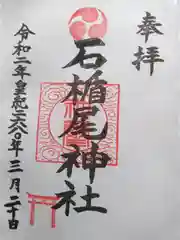 奉拝
石楯尾神社
令和二年皇紀二六八〇年三月二十日